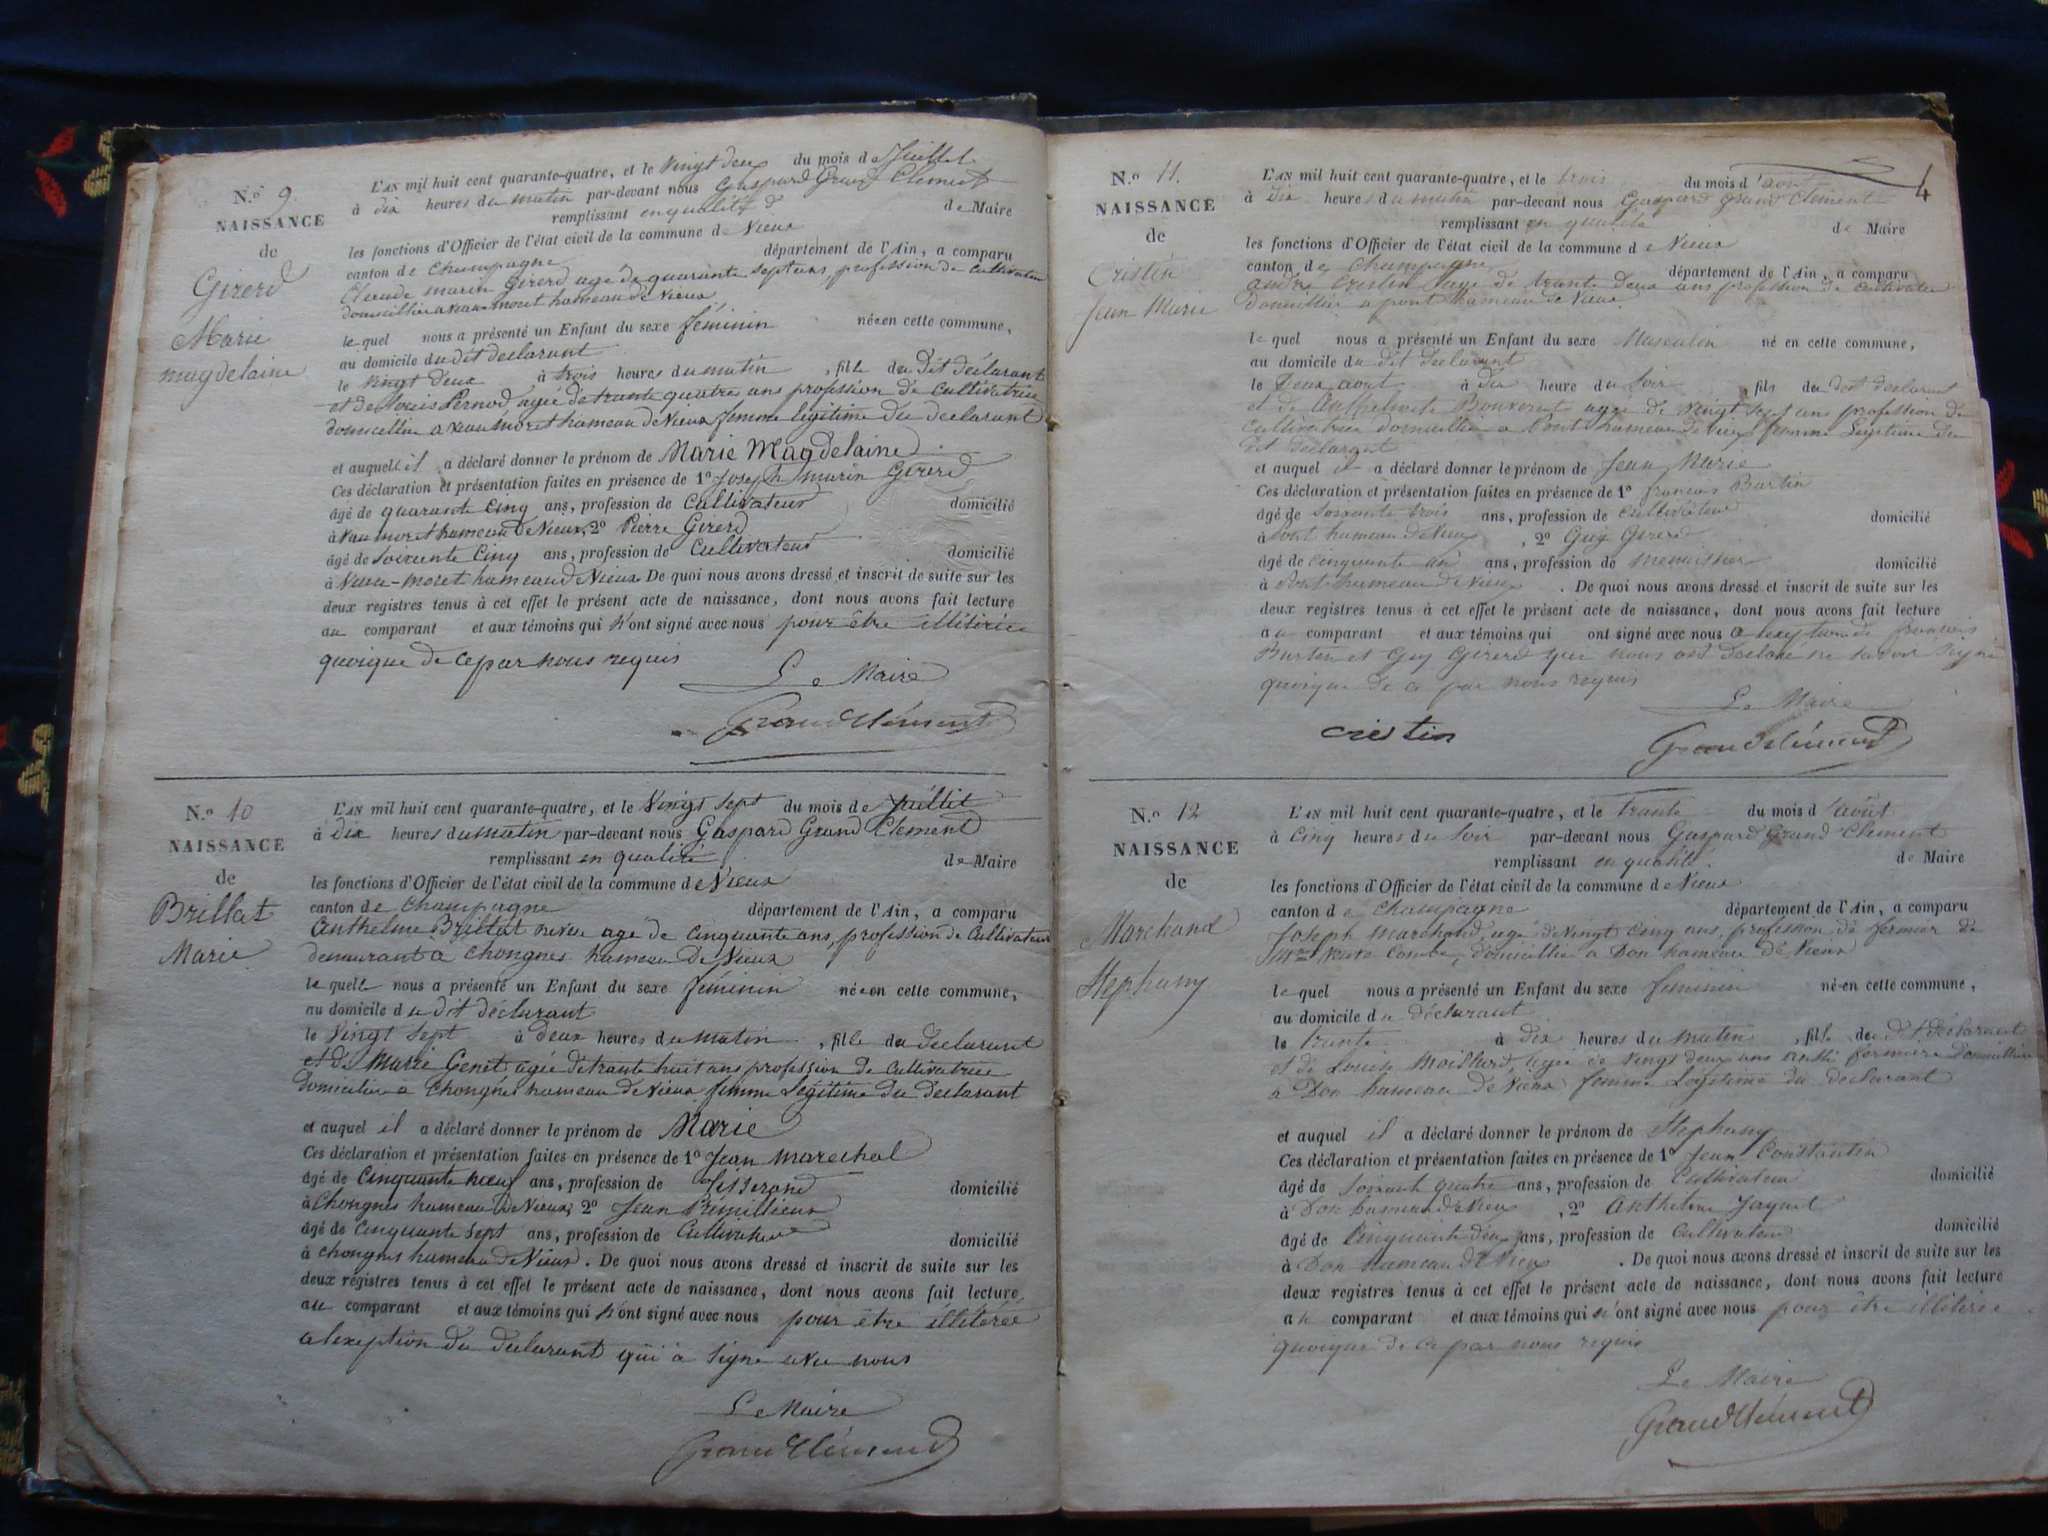 N.º 9.
NAISSANCE
de
Girerd
Marie
magdelaine
L'AN mil huit cent quarante-quatre, et le vingt deux du mois de Juillet
à dix heures du matin par-devant nous Gaspard Grand Clement
remplissant en qualité de Maire
les fonctions d'Officier de l'état civil de la commune de Vieux
canton de Champagne département de l'Ain, a comparu
Claude marin Girerd age de quarante sept ans, profession de cultivateur
domicillie a vaux-moret hameau de Vieux
le quel nous a présenté un Enfant du sexe féminin née en cette commune,
au domicile du dit declarant
le vingt deux à trois heures du matin, fille du Dit déclarant
et de Louise Pernod agée de trante quatre ans profession de Cultivatrice
domicillie a vaux moret hameau de Vieux femme légitime du declarant
et auquel il a déclaré donner le prénom de Marie Magdelaine
Ces déclaration et présentation faites en présence de 1º Joseph marin Girerd
âgé de quarante Cinq ans, profession de Cultivateur domicilié
à Vau moret hameau de Vieux, 2º Pierre Girerd
âgé de soixente Cinq ans, profession de Cultivateur domicilié
à Vaux-moret hameau de Vieux De quoi nous avons dressé et inscrit de suite sur les
deux registres tenus à cet effet le présent acte de naissance, dont nous avons fait lecture
au comparant et aux témoins qui n'ont signé avec nous pour être illitérée
quoique de ce par nous requis
Le Maire
Grand Clément
N.º 10
NAISSANCE
de
Brillat
Marie
L'AN mil huit cent quarante-quatre, et le Vingt sept du mois de Juillet
à dix heures du matin par-devant nous Gaspard Grand Clement
remplissant en qualité de Maire
les fonctions d'Officier de l'état civil de la commune de Vieux
canton de Champagne département de l'Ain, a comparu
Anthelme Brillat age de cinquante ans, profession de Cultivateur
demeurant a Chongnes hameau de Vieux
le quelle nous a présenté un Enfant du sexe féminin née en cette commune,
au domicile du dit déclarant
le Vingt sept à deux heures du matin, fille du declarant
et de Marie Genet agée de trante huit ans profession de cultivatrice
domicilie a Chongnes hameau de Vieux femme Légitime du declarant
et auquel il a déclaré donner le prénom de Marie
Ces déclaration et présentation faites en présence de 1º Jean Marechal
âgé de Cinquante neuf ans, profession de Tisserand domicilié
à Chongnes hameau de Vieux, 2º Jean
âgé de Cinquante sept ans, profession de Cultivateur domicilié
à Chongnes hameau de Vieux. De quoi nous avons dressé et inscrit de suite sur les
deux registres tenus à cet effet le présent acte de naissance, dont nous avons fait lecture
au comparant et aux témoins qui n'ont signé avec nous pour être illitérée
a lexeption du declarant qui a signé avec nous
Le Maire
Grand Clément
4
N.º 11.
NAISSANCE
de
Cristin
Jean Marie
L'AN mil huit cent quarante-quatre, et le trois du mois d'aout
à dix heures du matin par-devant nous Gaspard Grand Clement
remplissant en qualité de Maire
les fonctions d'Officier de l'état civil de la commune de Vieux
canton de Champagne département de l'Ain, a comparu
andré cristin age de trante deux ans profession de cultivateur
domicillie a pont hameau de Vieux
le quel nous a présenté un Enfant du sexe Masculin né en cette commune,
au domicile du dit declarant
le Deux aout à dix heure du soir fils du dit declarant
et de agée de vingt sept ans profession de
cultivatrice domicillie a pont hameau de Vieux femme Legitime du
dit declarant
et auquel il a déclaré donner le prénom de Jean Marie
Ces déclaration et présentation faites en présence de 1º françois Burtin
âgé de soixante trois ans, profession de Cultivateur domicilié
à pont hameau de Vieux, 2º Guy Girerd
âgé de cinquante un ans, profession de menuisier domicilié
à pont hameau de Vieux. De quoi nous avons dressé et inscrit de suite sur les
deux registres tenus à cet effet le présent acte de naissance, dont nous avons fait lecture
au comparant et aux témoins qui ont signé avec nous a lexeption de françois
Burtin et Guy Girerd que nous ont declaré ne savoir signé
quoique de ce par nous requis
Le Maire
cristin
Grand Clément
N.º 12
NAISSANCE
de
Marchand
Stephany
L'AN mil huit cent quarante-quatre, et le Trante du mois d'août
à Cinq heures du soir par-devant nous Gaspard Grand Clement
remplissant en qualité de Maire
les fonctions d'Officier de l'état civil de la commune de Vieux
canton de Champagne département de l'Ain, a comparu
Joseph Marchand age de vingt cinq ans, profession de fermier de
Combe, domicillie a Don hameau de Vieux
le quel nous a présenté un Enfant du sexe féminin née en cette commune,
au domicile du déclarant
le trante à dix heures du matin, fille du dit déclarant
et de Louise Maillard agée de vingt deux ans fermiere domicillie
a Don hameau de Vieux femme Legitime du declarant
et auquel il a déclaré donner le prénom de Stephany
Ces déclaration et présentation faites en présence de 1º Jean Constantin
âgé de soixante quatre ans, profession de Cultivateur domicilié
à Don hameau de Vieux, 2º Anthelme Jaquet
âgé de Cinquante deux ans, profession de Cultivateur domicilié
à Don hameau de Vieux. De quoi nous avons dressé et inscrit de suite sur les
deux registres tenus à cet effet le présent acte de naissance, dont nous avons fait lecture
au comparant et aux témoins qui n'ont signé avec nous pour être illitérée
quoique de ce par nous requis
Le Maire
Grand Clément